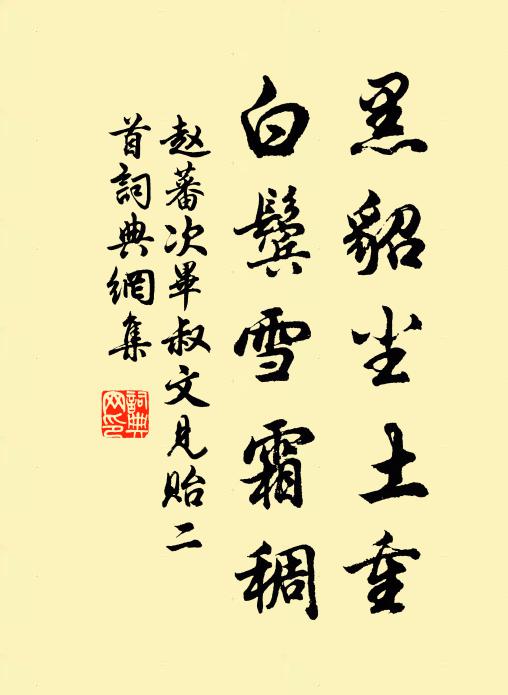 黑貂尘土重
白鬓雪霜稠
赵蕃次畢叔文見贻二
首詞典網集
詞典网印